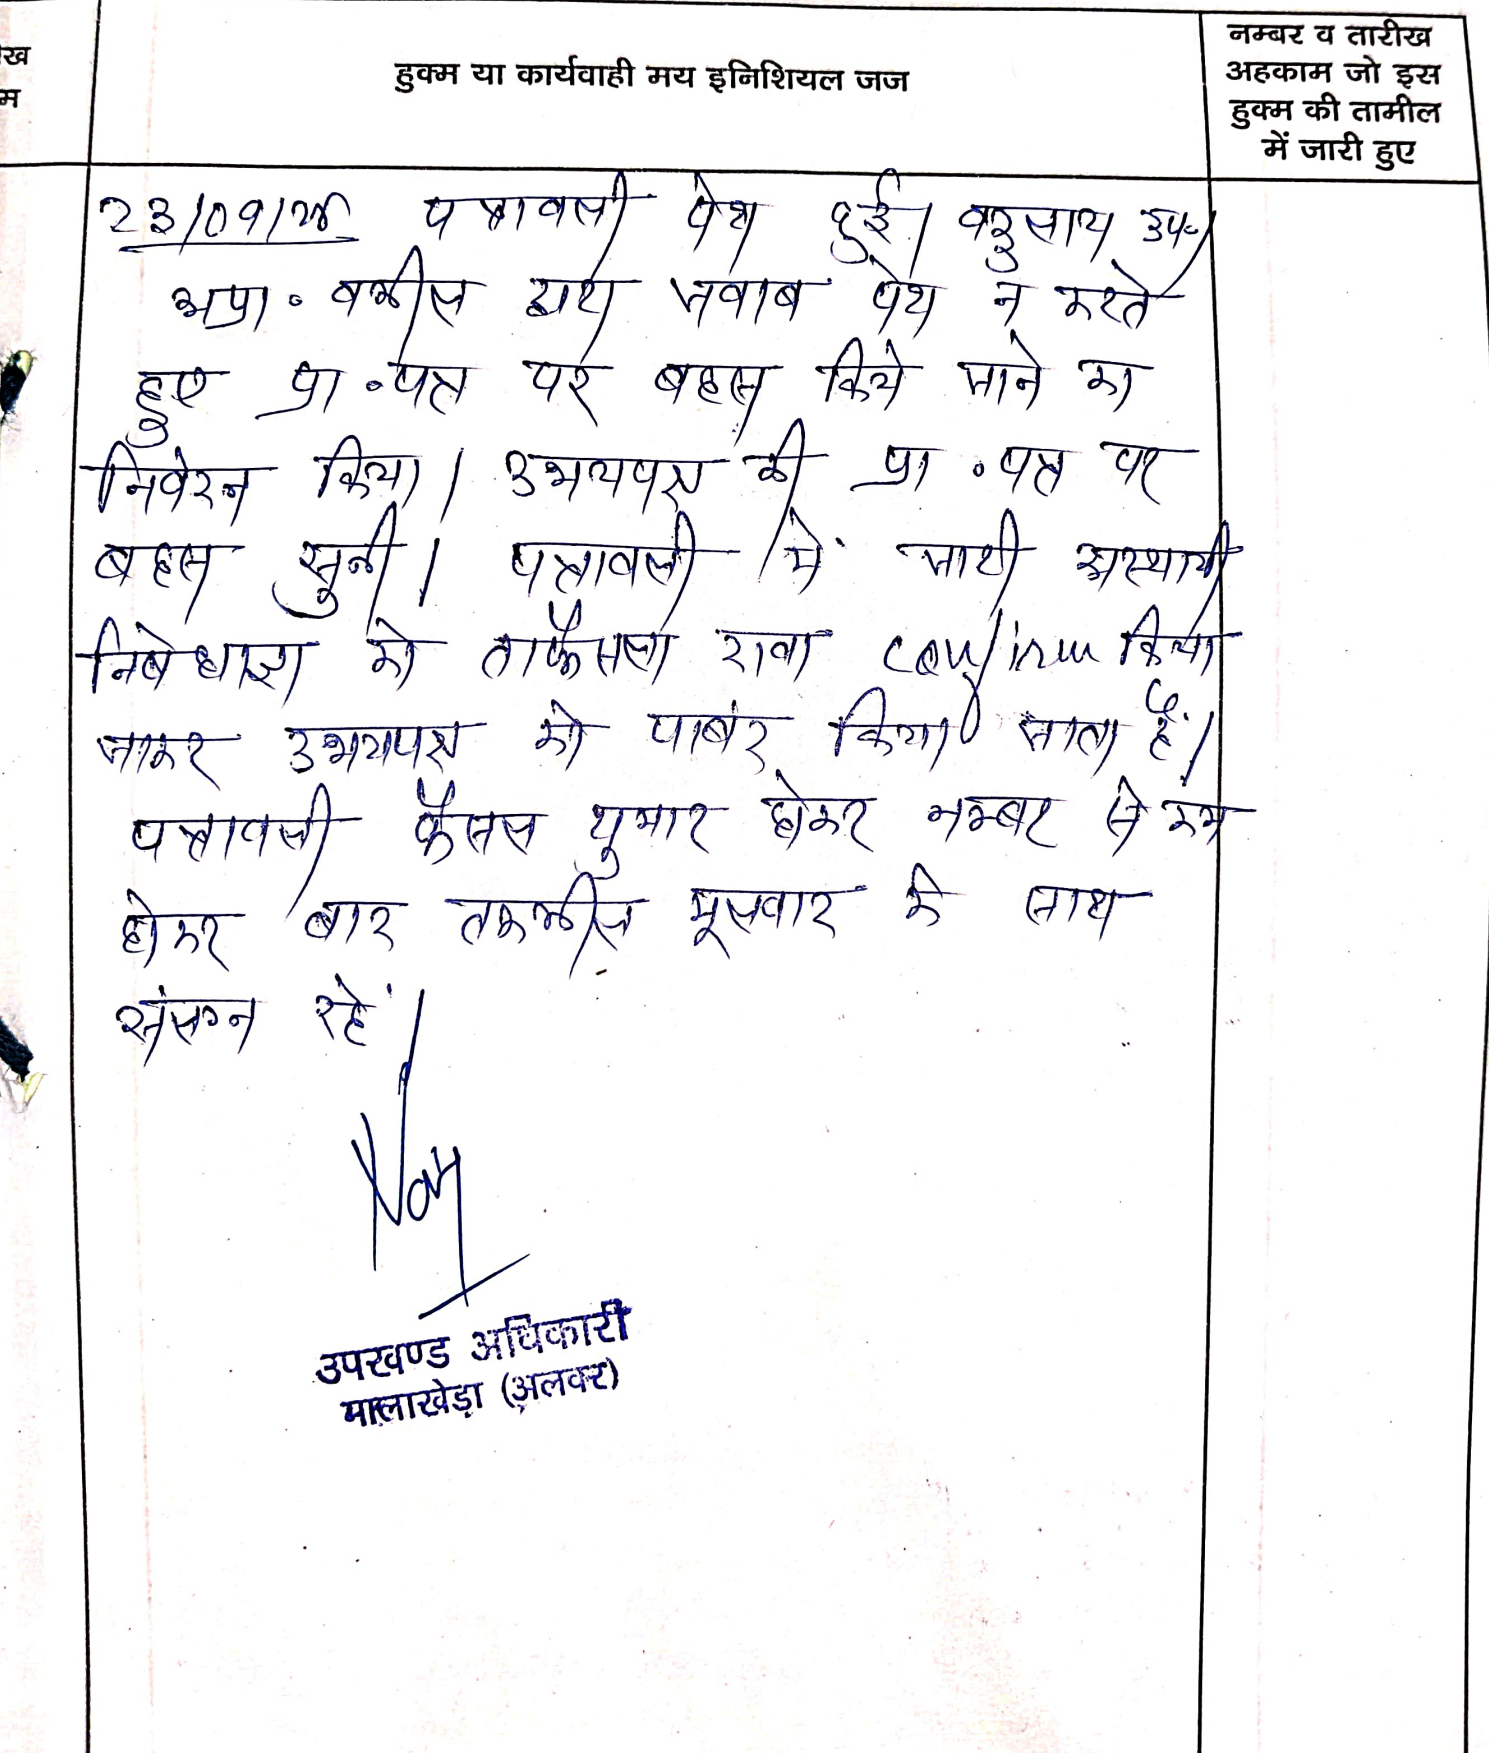 ख
म
हुक्म या कार्यवाही मय इनिशियल जज
नम्बर व तारीख
अहकाम जो इस
हुक्म की तामील
में जारी हुए
पत्रावली पेश हुई। वकुलाय उप.।
अप्रा. वकील द्वारा जवाब पेश न करते
हुए प्रा. पत्र पर बहस किये जाने का
निवेदन किया। उभयपक्ष की प्रा. पत्र पर
बहस सुनी। पत्रावली में जारी अस्थायी
निषेधाज्ञा को ताफैसला दावा confirm किया
जाकर उभयपक्ष को पाबंद किया जाता है।
पत्रावली फैसल शुमार होकर नम्बर से कम
होकर बाद तकमील मूलवाद के साथ
संलग्न रहें।
उपखण्ड अधिकारी
मालाखेड़ा (अलवर)